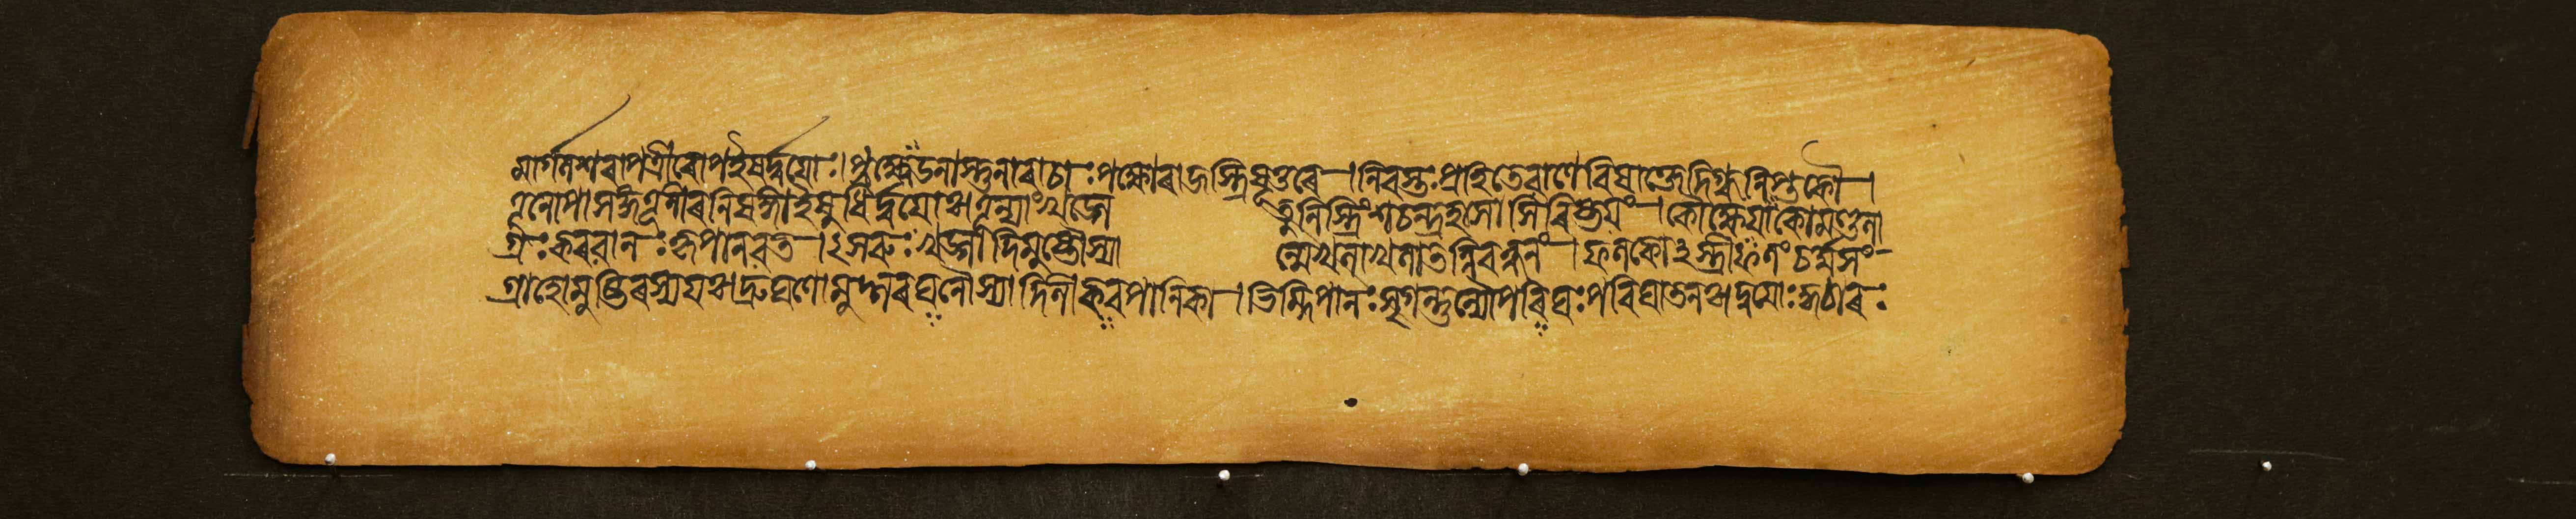 মাৰ্গণশৰাপত্রীৰোপইষুৰ্দ্বয়োঃ।প্রক্ষ্বেডনাস্তুনাৰাচাঃপক্ষোৱাজস্ত্রিষূত্তৰে।নিৰস্তঃপ্রহিতেৱাণেৱিষাক্তেদিগ্ধলিপ্তকৌ।
তূণোপাসঙ্গতূণীৰনিষঙ্গাইষুধিৰ্দ্বয়োঃতূণ্যাংখড্গে তুনিস্ত্রিংশচন্দ্রহাসাসিৰিষ্টয়ঃ।কৌক্ষেয়কোমণ্ডলা
গ্রঃকৰৱালঃকৃপাণৱত।ৎসৰুঃখড্গাদিমুষ্টৌস্যা ন্মেখলাখলাতন্নিবন্ধনং।ফলকোঽস্ত্রীফলংচৰ্ম্মসং
গ্রাহোমুষ্টিৰস্যয়ঃদ্রুঘণোমুদ্গৰঘনৌস্যাদিলীকৰৱালিকা।ভিন্দিপালঃসৃগস্তুল্যৌপৰিঘঃপৰিঘাতনঃদ্বয়োঃকুঠাৰঃ